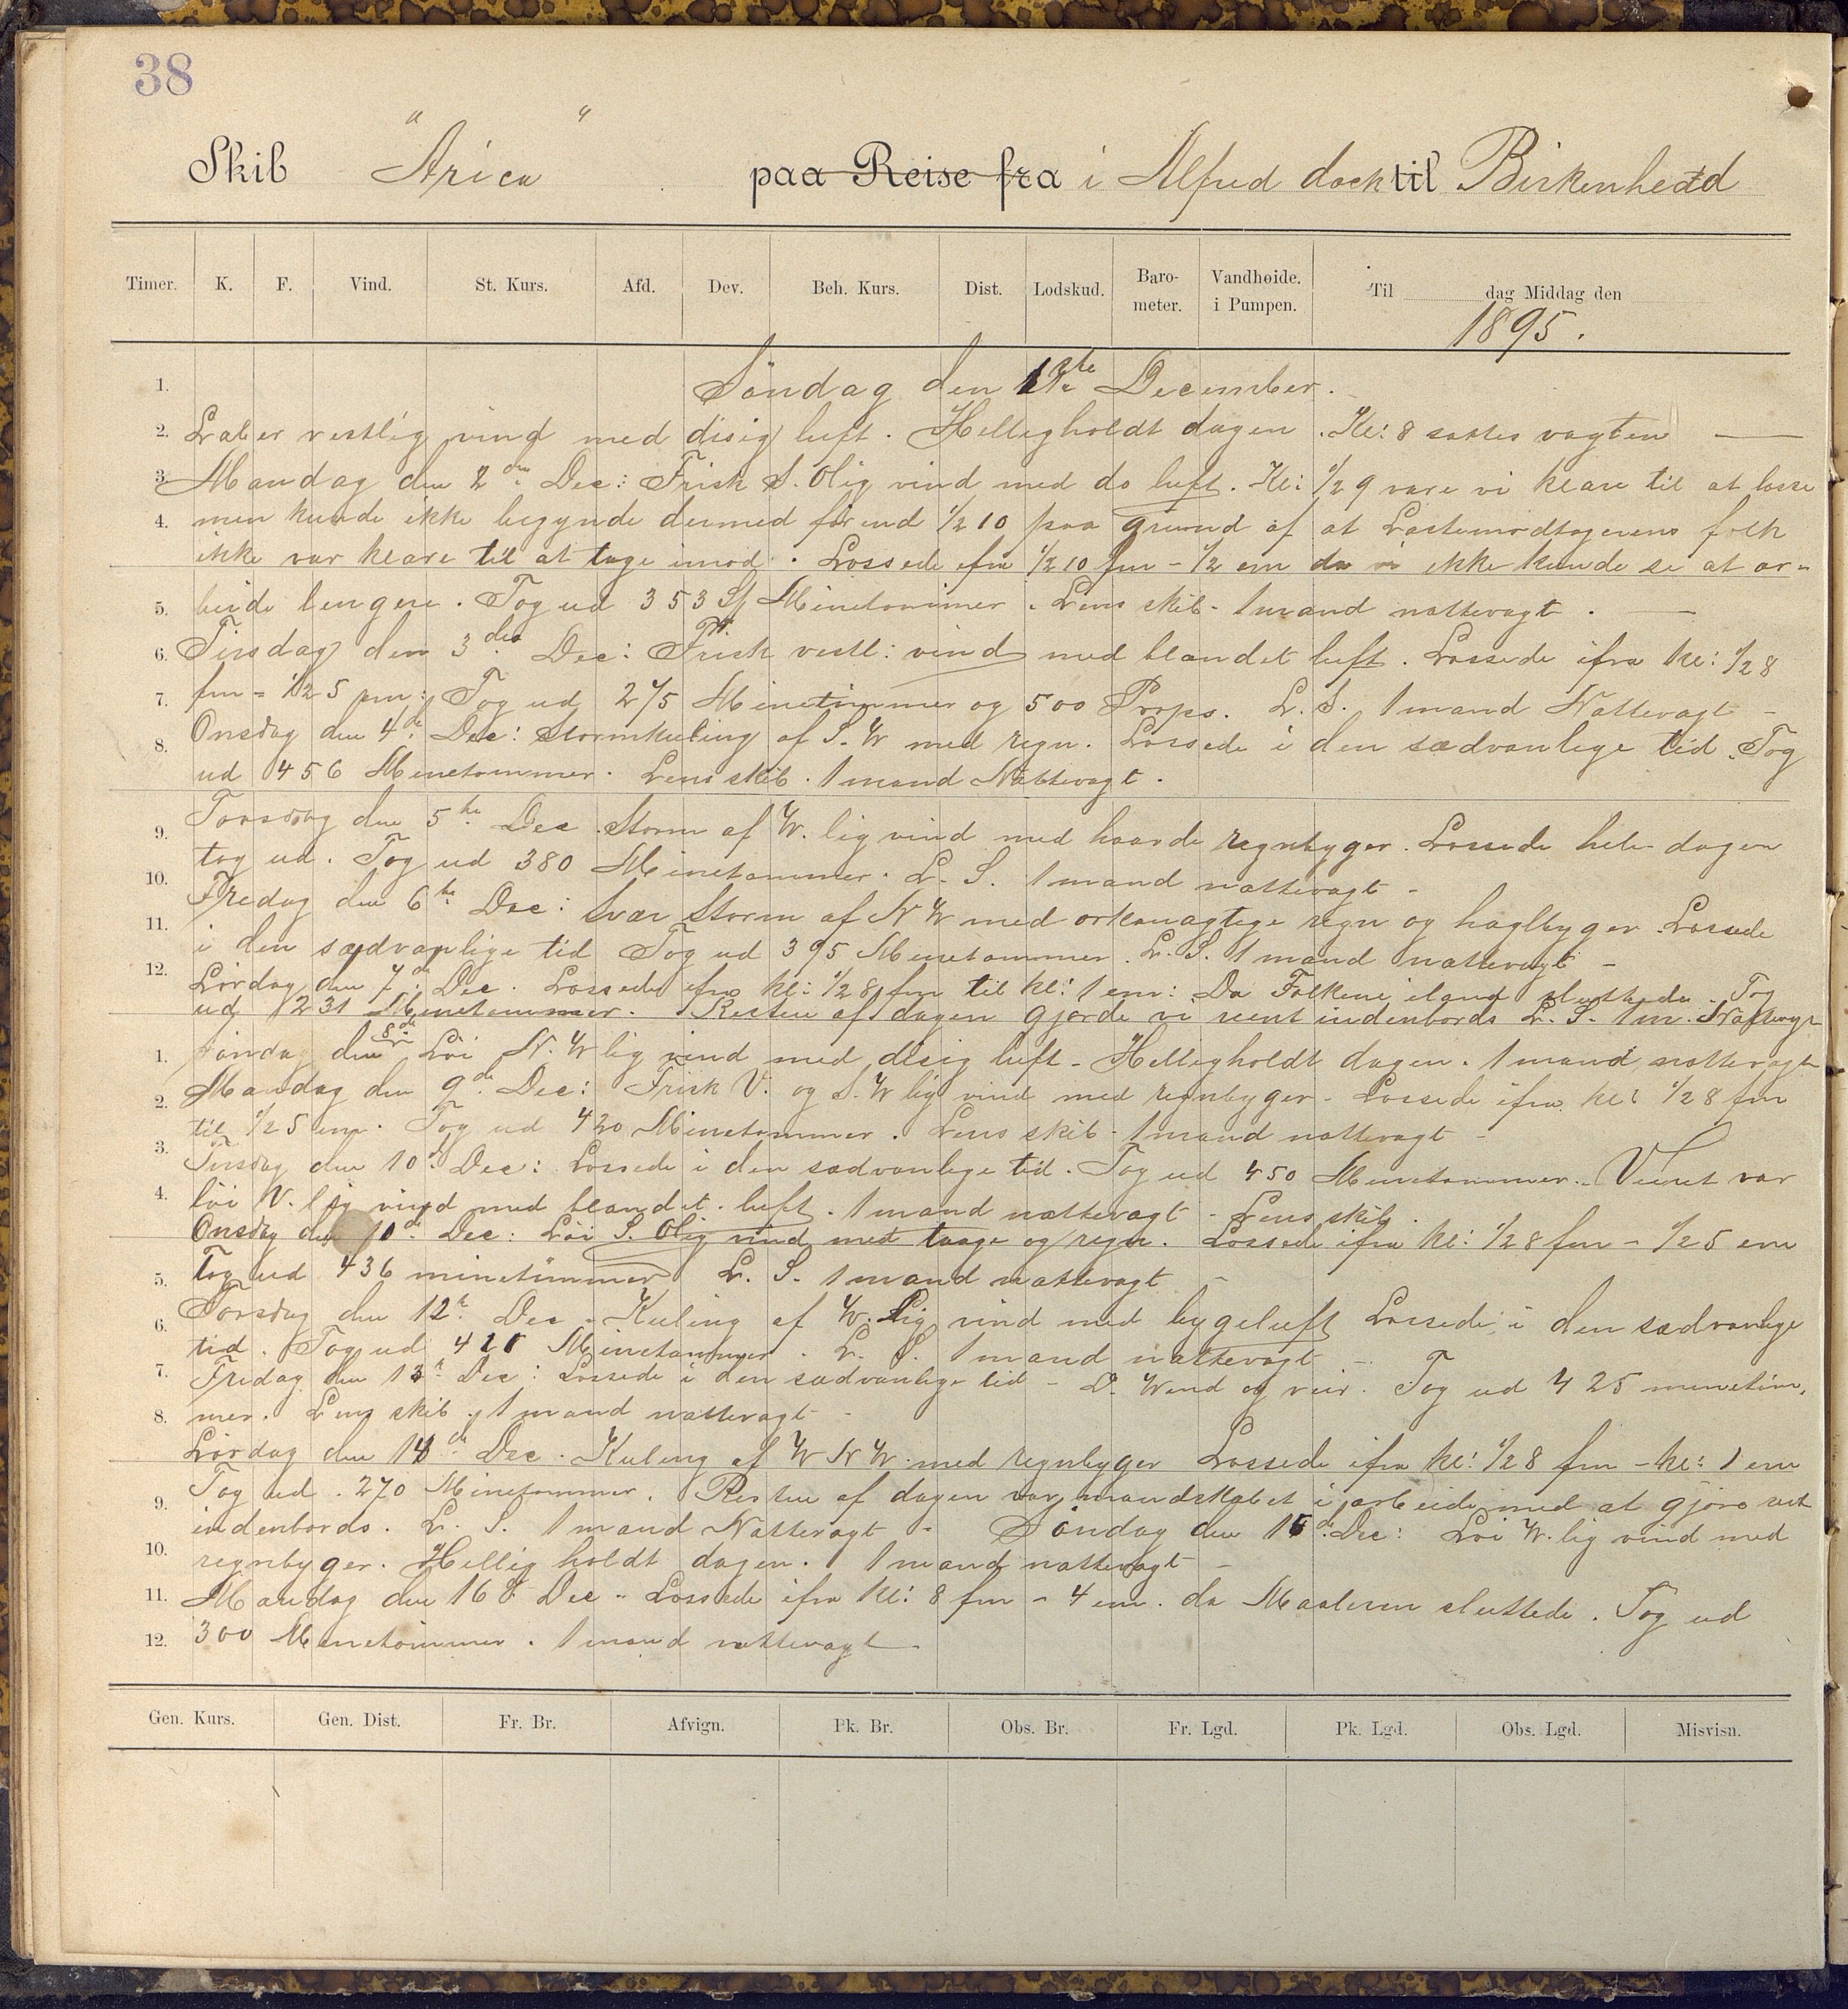 38
Skib "Arica" paa Reise fra i Alfred dock til Birkenhead
Timer. K. F. Vind. St. Kurs. Afd. Dev. Beh. Kurs. Dist. Lodskud. Baro-meter. Vandhøide. i Pumpen. Til dag Middag den
1895.
1. Söndag den 1ste December.
2. Laber vestlig vind med disig luft. Helligholdt dagen. Kl: 8 sattes vagten —
3. Mandag den 2den Dec: Frisk S. Olig vind med do luft. Kl: 1/2 9 vare vi klare til at losse
4. men kunde ikke begynde dermed förend 1/2 10 paa grund af at Lastemodtagerens folk
ikke var klare til at tage imod. Lossede ifra 1/2 10 fm - 1/2 em da vi ikke kunde se at ar-
5. beide lengere. Tog ud 353 St Minetömmer. Lens skib - 1 mand nattevagt. —
6. Tirsdag den 3die Dec: Frisk vestl: vind med blandet luft. Lossede ifra kl: 1/2 8
7. fm - 1/2 5 em: Tog ud 275 Minetömmer og 500 Props. L. S. 1 mand Nattevagt -
8. Onsdag den 4de Dec: Stormkuling af S. W med regn. Lossede i den sædvanlige tid. Tog
ud 456 Minetömmer. Lens skib. 1 mand Nattevagt.
9. Torsdag den 5te Dec. Storm af W. lig vind med haarde regnbyger. Lossede hele dagen
tog ud. Tog ud 380 Minetömmer. L. S. 1 mand nattevagt -
10. Fredag den 6te Dec: Svær Storm af N W med orkanagtige regn og haglbyger. Lossede
11. i den sædvanlige tid Tog ud 395 Minetömmer. L. S. 1 mand nattevagt -
12. Lördag den 7de Dec. Lossede ifra kl: 1/2 8 fm til kl: 1 em: Da Folkene iland sluttede. Tog
ud 231 Minetömmer. Resten af dagen gjorde vi reent indenbords L. S. 1 m. Nattevagt
1. Söndag den 8de Löi N. W lig vind med disig luft - Helligholdt dagen. 1 mand nattevagt
2. Mandag den 9de Dec: Frisk V. og S. W lig vind med regnbyger - Lossede ifra kl: 1/2 8 fm
til 1/2 5 em. Tog ud 420 Minetömmer. Lens skib - 1 mand nattevagt -
3. Tirsdag den 10de Dec: Lossede i den sædvanlige tid. Tog ud 450 Minetömmer. Veiret var
4. löi V. lig vind med blandet luft. 1 mand nattevagt - Lens skib.
Onsdag den 10de Dec: Löi S. Olig vind med taage og regn. Lossede ifra kl: 1/2 8 fm - 1/2 5 em
5. Tog ud 436 minetömmer L. S. 1 mand nattevagt -
6. Torsdag den 12te Dec - Kuling af W. Lig vind med bygeluft Lossede i den sædvanlige
tid. Tog ud Minetömmer. L. S. 1 mand nattevagt -
7. Fredag den 13te Dec: Lossede i den sædvanlige tid - D. Wind og veir. Tog ud 425 minetöm-
8. mer. Lens skib. 1 mand nattevagt -
Lördag den 14de Dec. Kuling af W N W. med regnbyger Lossede ifra kl: 1/2 8 fm - kl: 1 em
9. Tog ud. 270 Minetömmer. Resten af dagen var mandskabet i arbeide med at gjöre rent
indenbords. L. S. 1 mand Nattevagt - Söndag den 15de Dec: Löi W. lig vind med
10. regnbyger. Hellig holdt dagen. 1 mand nattevagt -
11. Mandag den 16de Dec - Lossede ifra kl: 8 fm - 4 em. da Maaleren sluttede. Tog ud
12. 300 Minetömmer. 1 mand nattevagt -
Gen. Kurs. Gen. Dist. Fr. Br. Afvign. Pk. Br. Obs. Br. Fr. Lgd. Pk. Lgd. Obs. Lgd. Misvisn.